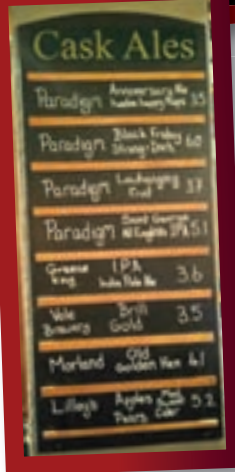 Cask Ales
Paradigm Anniversary Ale 3.5
Paradigm Black Friday 6.0
Strong Dark
Paradigm 3.7
Paradigm Saint George 5.1
All English IPA
Greene IPA 3.6
King India Pale Ale
Vale Brill 3.5
Brewery Gold
Morland Old 4.1
Golden Hen
Lilley's Apples 5.2
Pears Cider